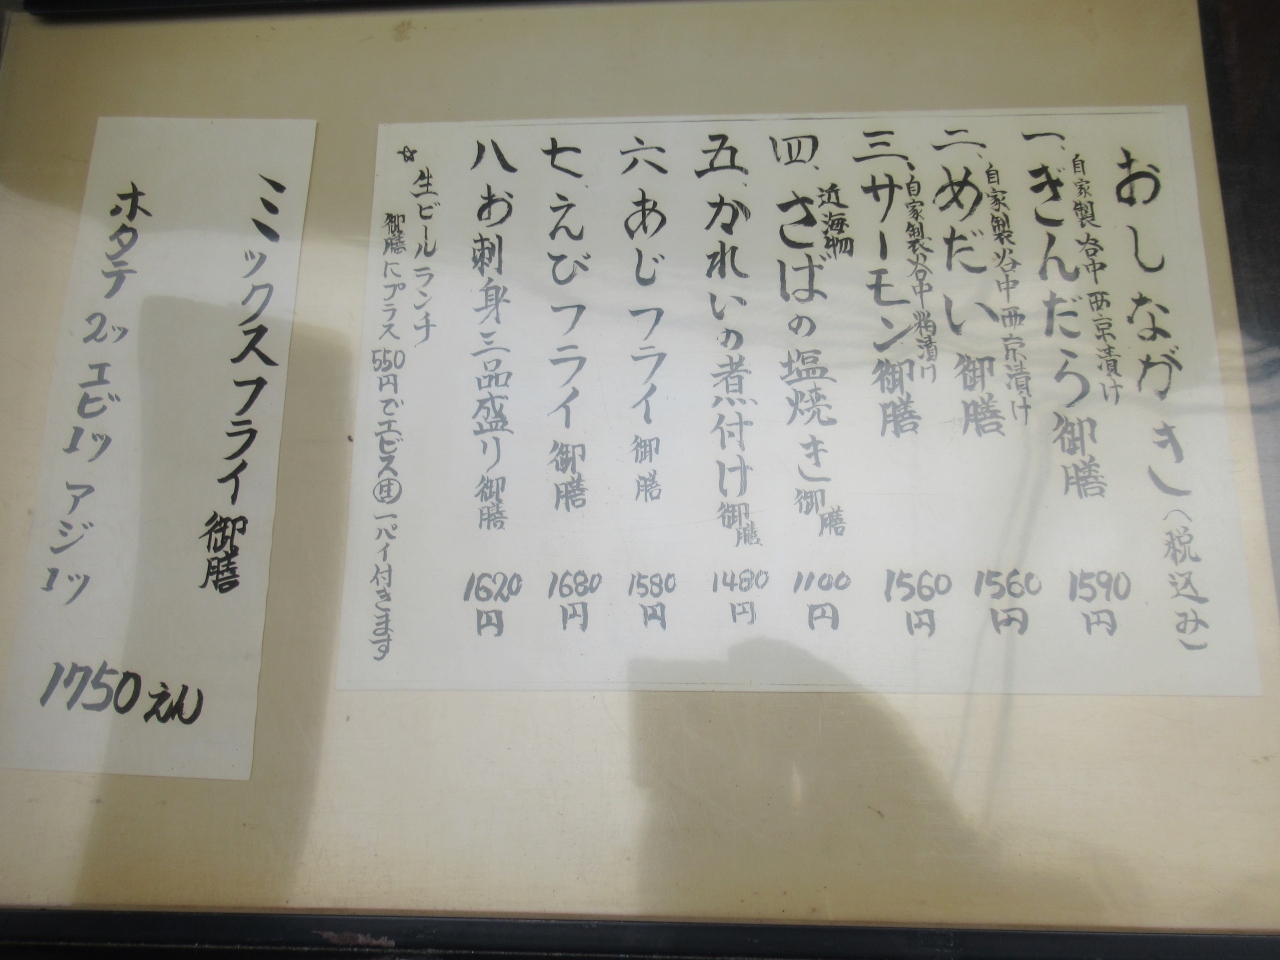 おしながき(税込み)
自家製谷中西京漬け
一、ぎんだら御膳 1590円
自家製谷中西京漬け
二、めだい御膳 1560円
自家製谷中粕漬け
三、サーモン御膳 1560円
近海物
四、さばの塩焼き御膳 1100円
五、かれいの煮付け御膳 1480円
六あじフライ御膳 1580円
七、えびフライ御膳 1680円
八お刺身三品盛り御膳 1620円
☆生ビールランチ
御膳にプラス550円でエビス㊉一パイ付きます
ミックスフライ御膳
ホタテ2ッ エビ1ッ アジ1ッ
1750えん